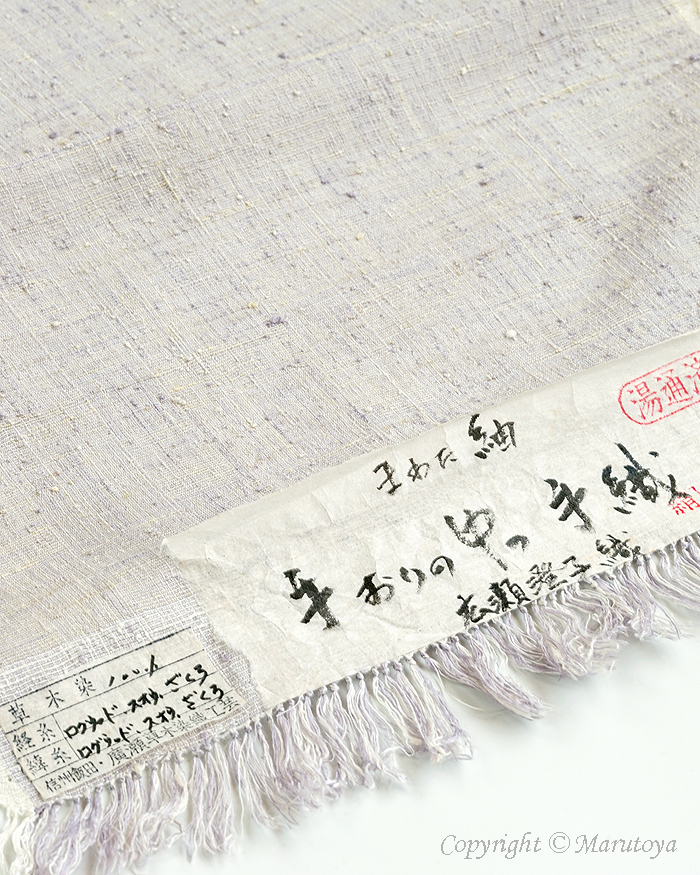 湯通済
まわた紬
手おりの中の手織
絹
広瀬澄子織
草木染
経糸 ログウッド、スオウ、ざくろ
緯糸 ログウッド、スオウ、ざくろ
信州飯田・廣瀬草木染織工芸
Copyright © Marutoya